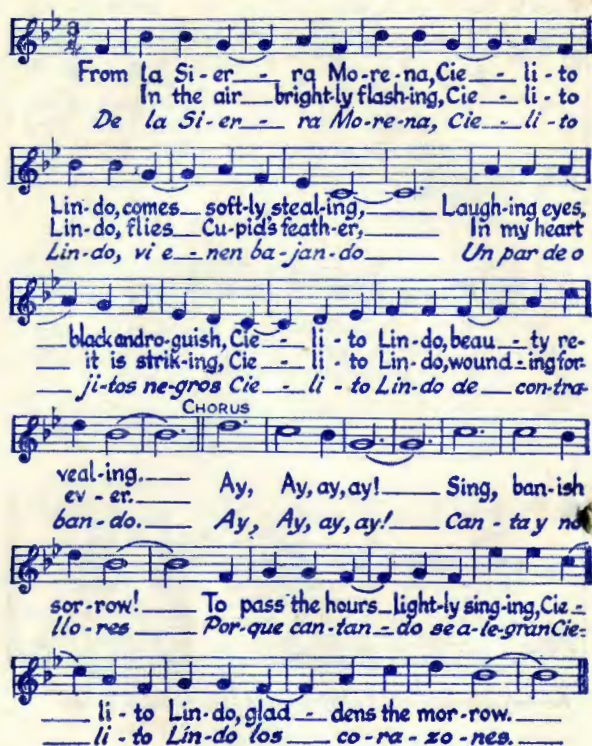 From la Si-er__ra Mo-re-na, Cie__li-to
In the air__bright-ly flash-ing, Cie__li-to
De la Si-er__ra Mo-re-na, Cie__li-to
Lin-do, comes__soft-ly steal-ing,____Laugh-ing eyes,
Lin-do, flies__Cu-pid's feath-er,____In my heart
Lin-do, vi e__nen ba-jan-do____Un par de o
__black and ro-guish, Cie__li-to Lin-do, beau__ty re-
__it is strik-ing, Cie__li-to Lin-do, wound__ing for-
__ji-tos ne-gros Cie__li-to Lin-do de__con-tra-
CHORUS
veal-ing.____Ay, Ay, ay, ay!____Sing, ban-ish
ev-er.____
ban-do.____Ay, Ay, ay, ay!____Can-ta y no
sor-row!____To pass the hours__light-ly sing-ing, Cie__
llo-res____Por-que can-tan__do se a-le-gran Cie__
__li-to Lin-do, glad__dens the mor-row.____
__li-to Lin-do los__co-ra-zo-nes.____